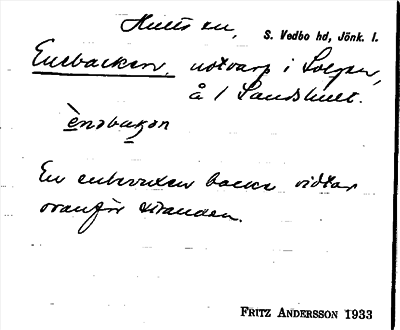 Hults sn, S. Vedbo hd, Jönk. l.
Enebacken, notvarp i Solgen,
å / Sandshult.
ènəbakən
En enbevuxen backe vidtar
ovanför stranden.
FRITZ ANDERSSON 1933